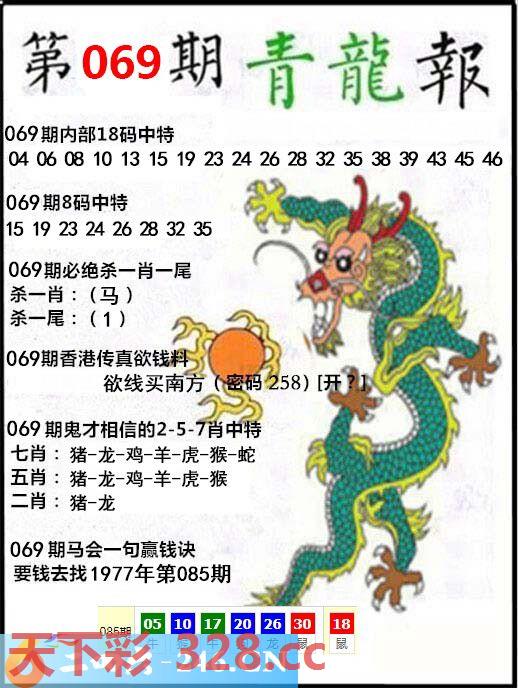 第069期青龍報
069期内部18码中特
04 06 08 10 13 15 19 23 24 26 28 32 35 38 39 43 45 46
069期8码中特
15 19 23 24 26 28 32 35
069期必绝杀一肖一尾
杀一肖：（马）
杀一尾：（1）
069期香港传真欲钱料
欲线买南方（密码 258）[开？]
069期鬼才相信的2-5-7肖中特
七肖：猪-龙-鸡-羊-虎-猴-蛇
五肖：猪-龙-鸡-羊-虎-猴
二肖：猪-龙
069期马会一句赢钱诀
要钱去找1977年第085期
085期 05 10 17 20 26 30 18
牛 龙 鼠 鼠
天下彩-328.cc